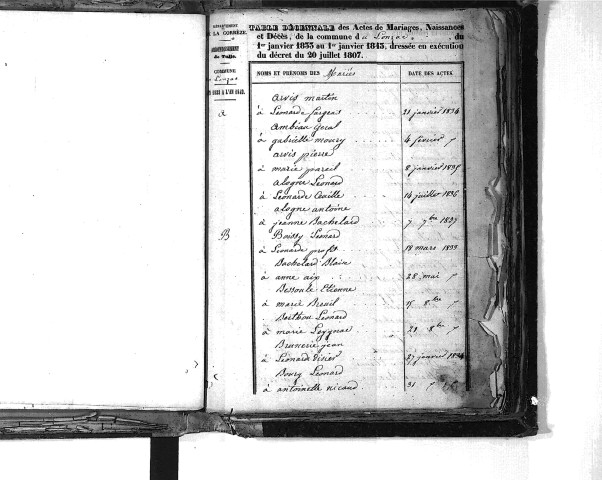 DÉPARTEMENT
DE LA CORRÈZE.
ARRONDISSEMENT
de Tulle.
COMMUNE
TABLE DÉCENNALE des Actes de Mariages, Naissances
et Décès, de la commune d , du
1er janvier 1833 au 1er janvier 1843, dressée en exécution
du décret du 20 juillet 1807.
NOMS ET PRÉNOMS DES Mariés DATE DES ACTES
a
arvis martin
à Léonarde fargeas 21 janvier 1834
ambiau geral
à gabrielle moury 4 février
arvis pierre
à marie pareil 8 janvier 1835
alogne Léonard
à Léonarde 14 juillet 1836
alogne antoine
à jeanne Bachelard 7 7bre 1837
B
Boissy Léonard
à Léonarde profit 18 mars 1833
Bachelard Blaise
à anne aix 28 mai
Bessoule Etienne
à marie Breuil 15 8bre
Berthou Léonard
à marie Leygnac 29 8bre
Brunerie jean
à Léonarde 27 janvier 1834
Boury Léonard
à antoinette nicaud 31